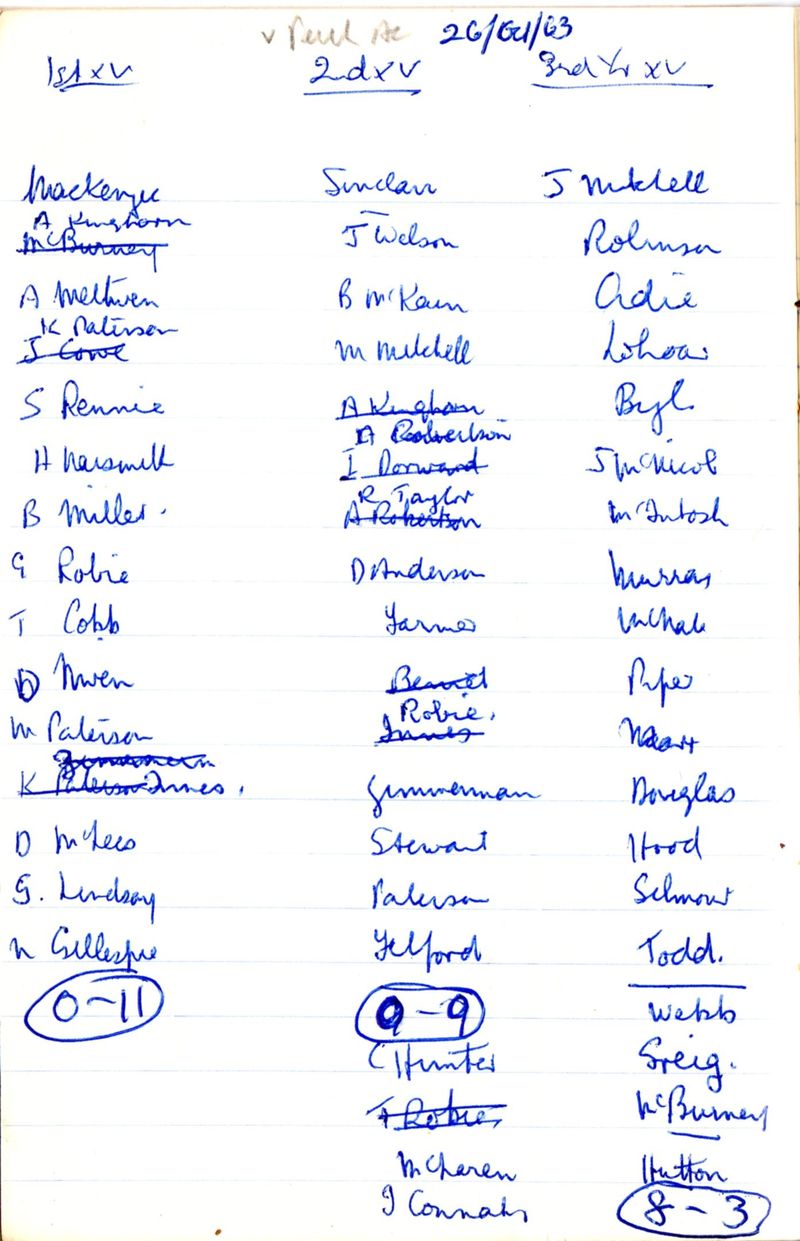 v Perth Ac 26/Oct/63
1st XV 2nd XV 3rd Yr XV
Mackenzie Sinclair J Mitchell
A Kinghorn
McBurney J Wilson Robinson
A Methven B McKain Adie
K Paterson
J Cowe M Mitchell Lohoar
S Rennie A Kinghorn
A Robertson
H Naismith I Dorward J McNicol
R Taylor
B Miller. A Robertson McIntosh
G Robie D Anderson Murray
T Cobb Farmer McHale
D Niven Bennet Piper
Robie.
M Paterson Innes
Zimmerman
K Paterson Innes. Zimmerman Douglas
D McLees Stewart Hood
G. Lindsay Paterson
N Gillespie Telford Todd.
0-11 9-9 Webb
C Hunter Greig.
A Robie McBurney
McLaren Hutton
8-3